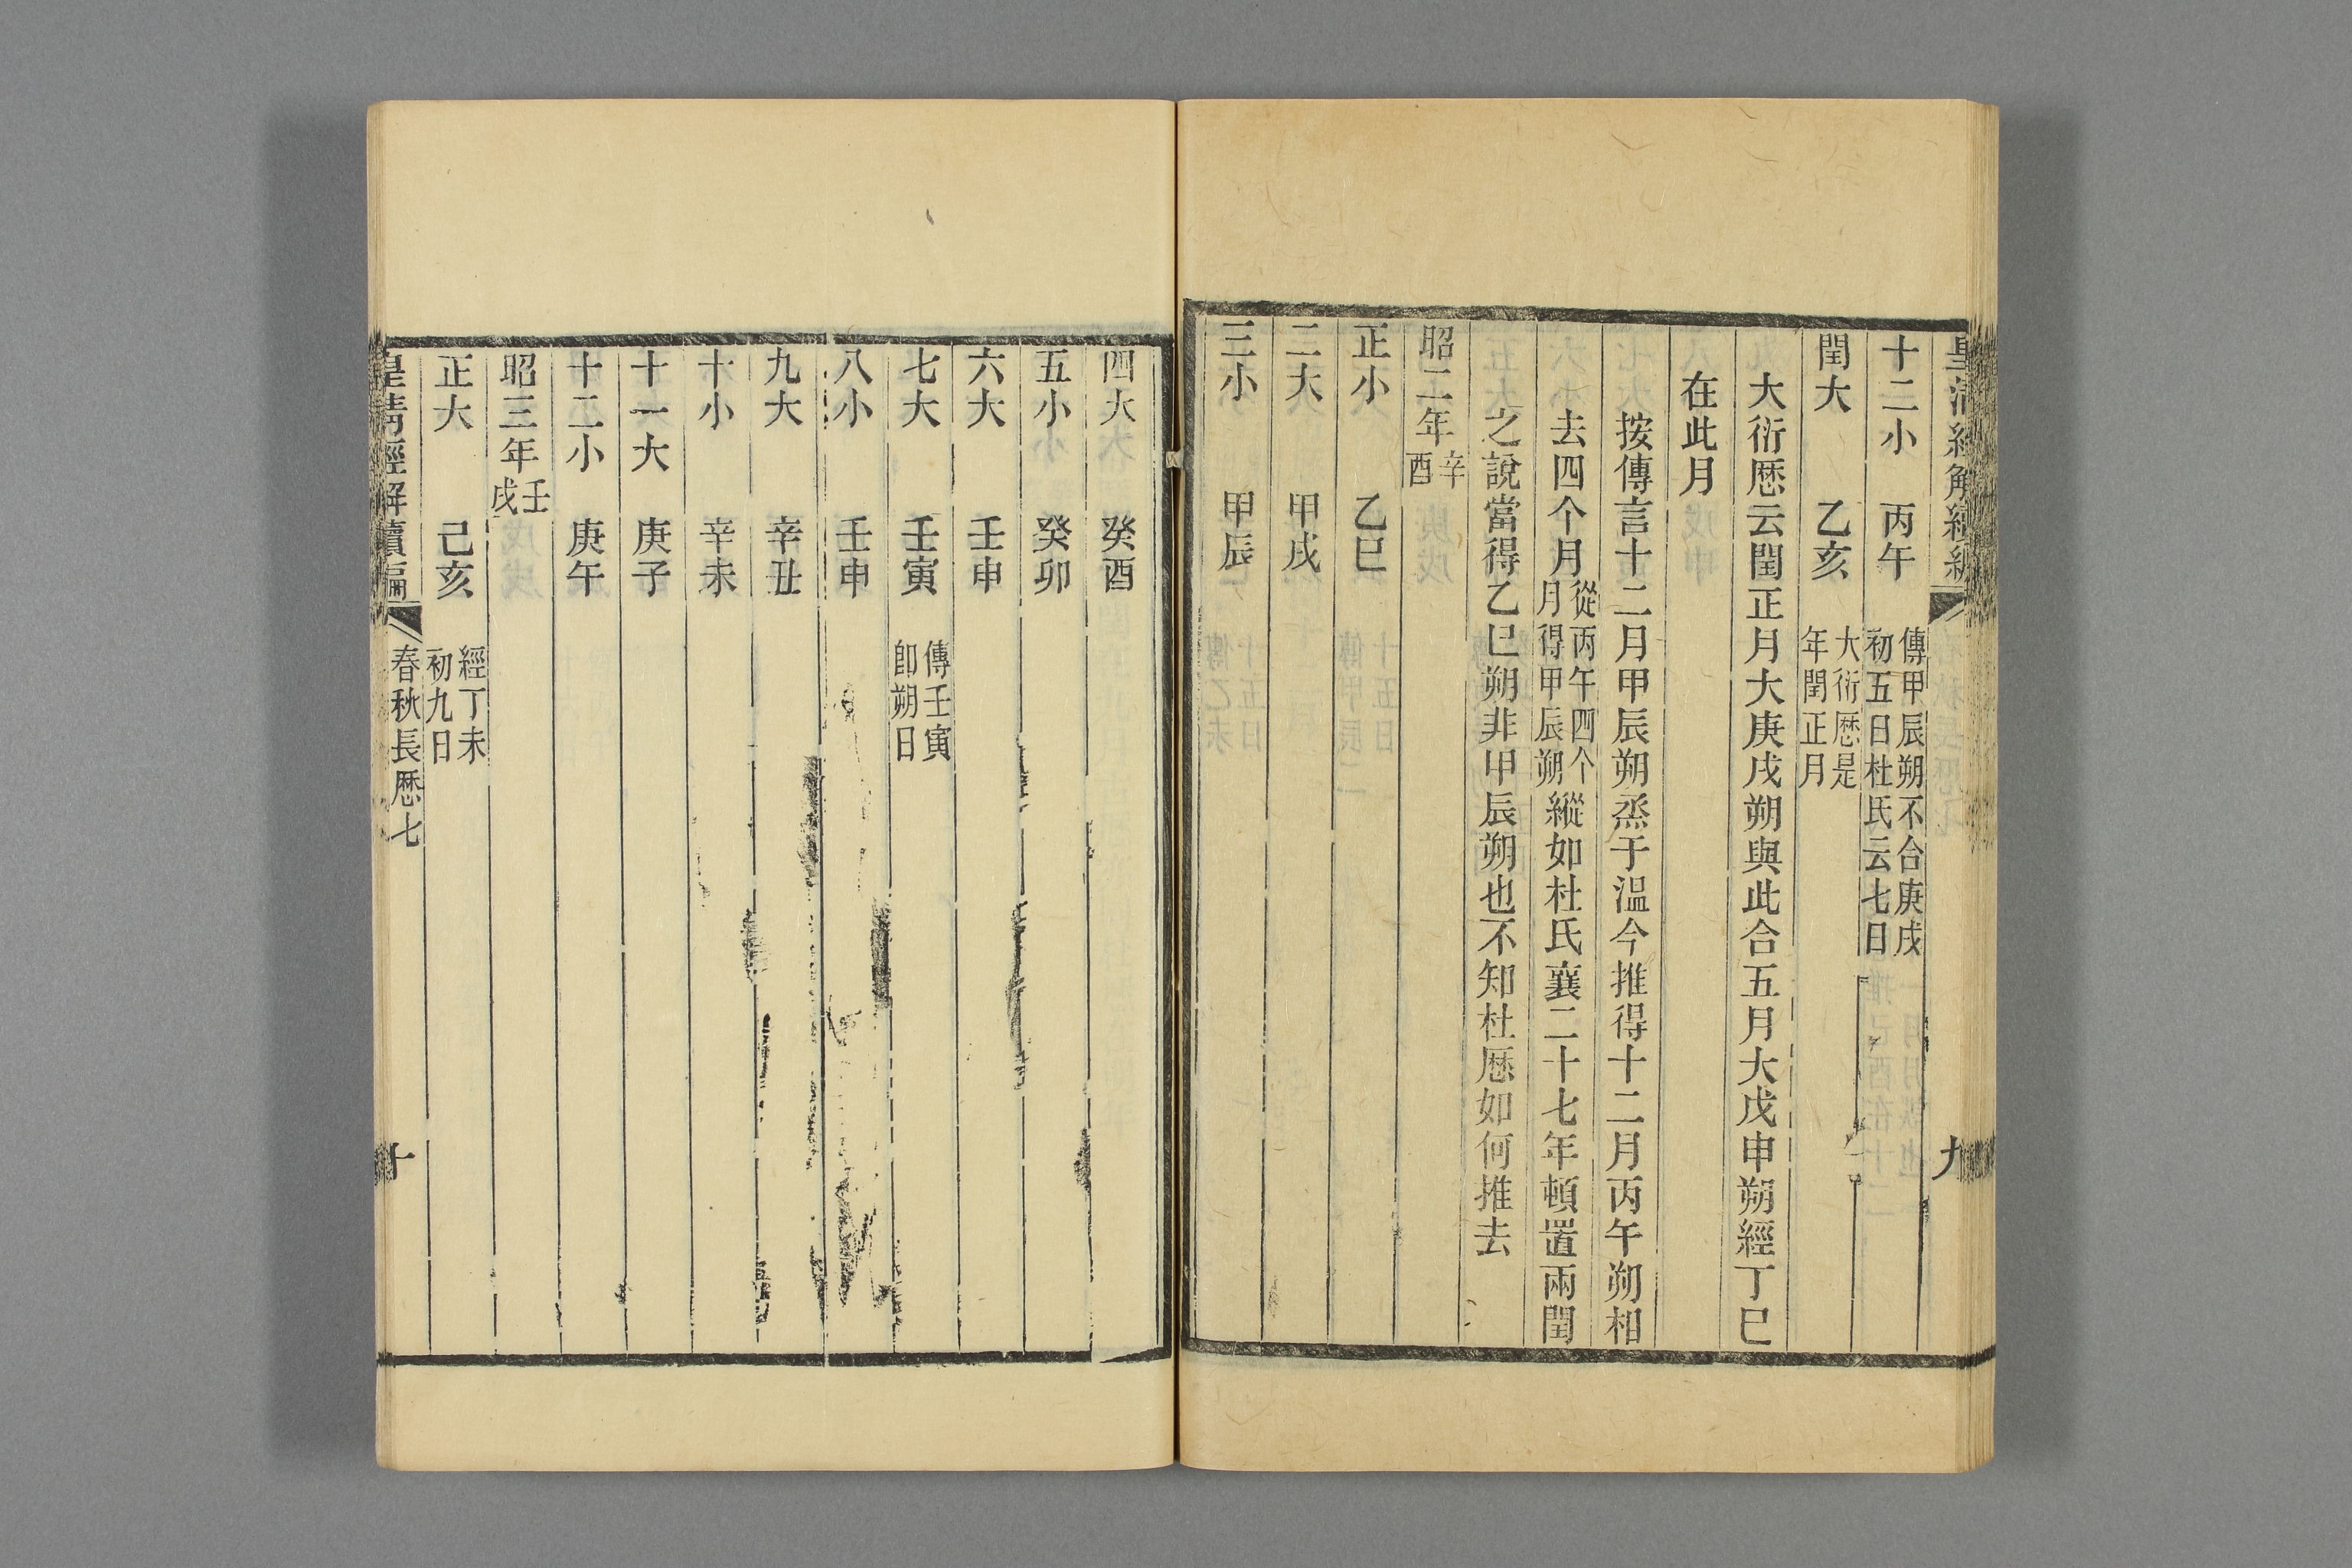 皇清經解續編 九
十二小 丙午 傳甲辰朔不合庚戌初五日杜氏云七日
閏大 乙亥 大衍厯是年閏正月
大衍厯云閏正月大庚戌朔與此合五月大戊申朔經丁巳
在此月
按傳言十二月甲辰朔烝于溫今推得十二月丙午朔相
去四个月從丙午四个月得甲辰朔縱如杜氏襄二十七年頓置兩閏
之說當得乙巳朔非甲辰朔也不知杜厯如何推去
昭二年辛酉
正小 乙巳
二大 甲戌
三小 甲辰
四大 癸酉
五小 癸卯
六大 壬申
七大 壬寅 傳壬寅卽朔日
八小 壬申
九大 辛丑
十小 辛未
十一大 庚子
十二小 庚午
昭三年壬戌
正大 己亥 經丁未初九日
皇淸經解續編 春秋長厯七 十